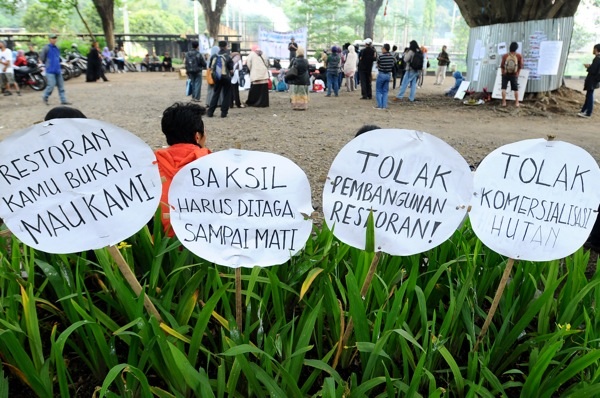 RESTORAN
KAMU BUKAN
MAU KAMI
BAKSIL
HARUS DIJAGA
SAMPAI MATI
TOLAK
PEMBANGUNAN
RESTORAN!
TOLAK
KOMERSIALISASI
HUTAN